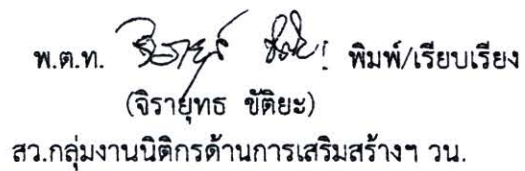 พ.ต.ท. จิรายุทธ ขัติยะ พิมพ์/เรียบเรียง
(จิรายุทธ ขัติยะ)
สว.กลุ่มงานนิติกรด้านการเสริมสร้างฯ วน.